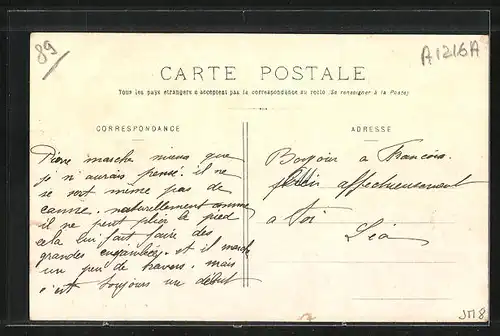 89
A1216A
CARTE POSTALE
Tous les pays étrangers n'acceptent pas la correspondance au recto (Se renseigner à la Poste)
CORRESPONDANCE
Pierre marche mieux que
je n'aurais pensé. il ne
se sert même pas de
canne. naturellement comme
il ne peut plier le pied
cela lui fait faire des
grandes enjambées. et il marche
un peu de travers, mais
c'est toujours un début
ADRESSE
Bonjour à François.
affectueusement
à toi
Léa